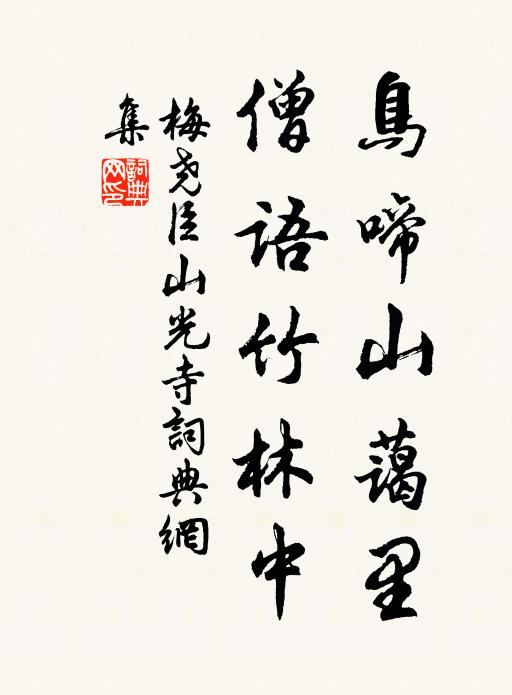 鳥啼山藹里
僧語竹林中
梅堯臣山光寺詞典網
集
詞典網印